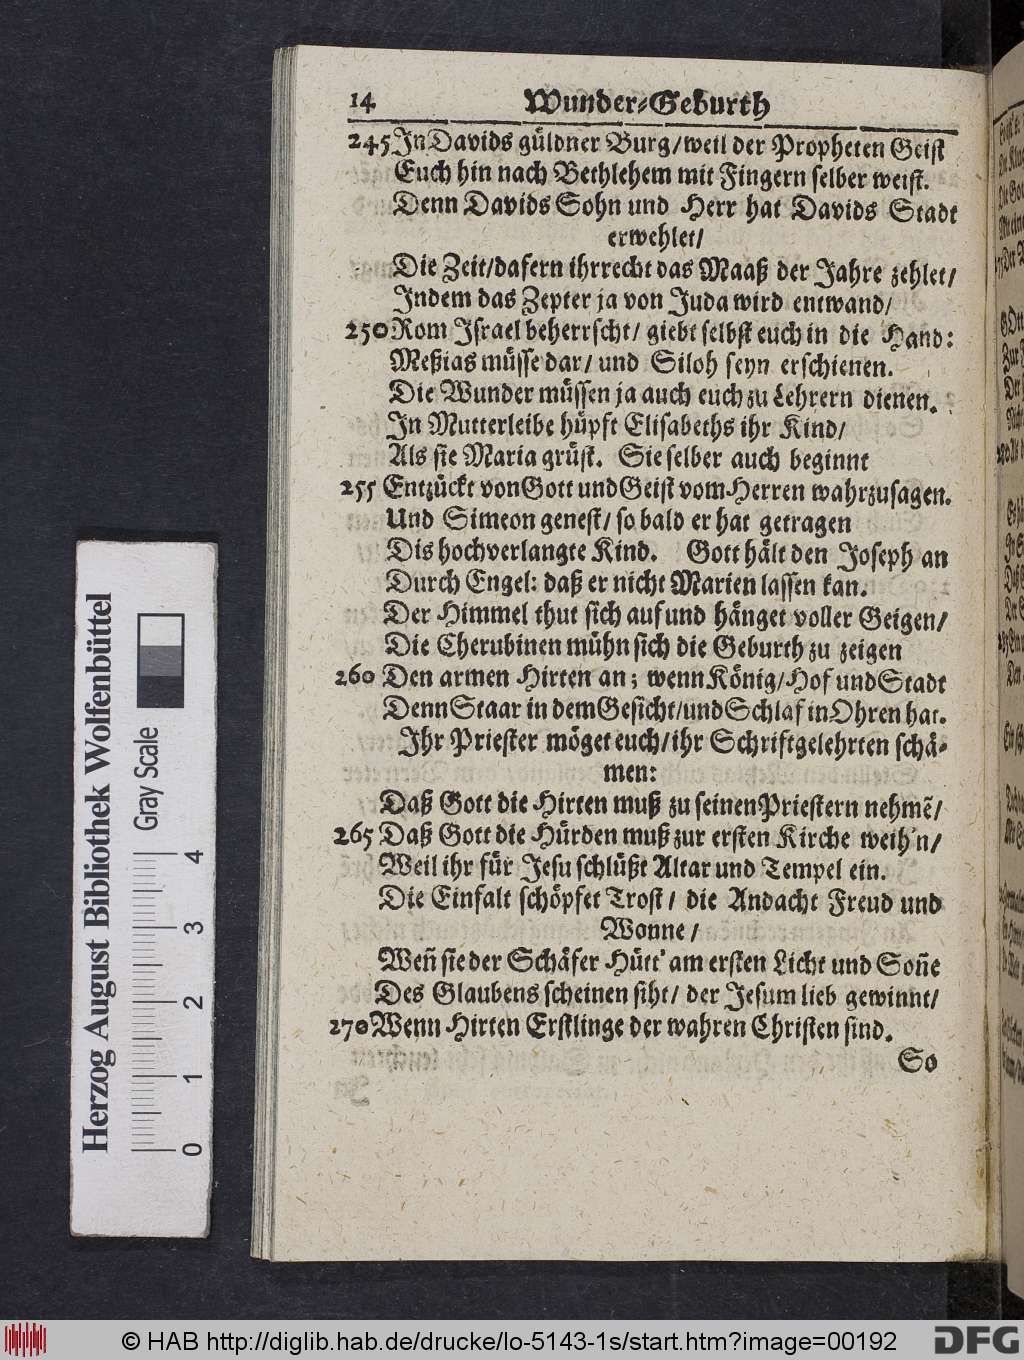 14 Wunder-Geburth
245 In Davids güldner Burg/ weil der Propheten Geist
Euch hin nach Bethlehem mit Fingern selber weist.
Denn Davids Sohn und Herr hat Davids Stadt
erwehlet/
Die Zeit/ dafern ihr recht das Maaß der Jahre zehlet/
Indem das Zepter ja von Juda wird entwand/
250 Rom Israel beherrscht/ giebt selbst euch in die Hand:
Meßias müsse dar/ und Siloh seyn erschienen.
Die Wunder müssen ja auch euch zu Lehrern dienen.
In Mutterleibe hüpft Elisabeths ihr Kind/
Als sie Maria grüst. Sie selber auch beginnt
255 Entzückt von Gott und Geist vom Herren wahrzusagen.
Und Simeon genest/ so bald er hat getragen
Dis hochverlangte Kind. Gott hält den Joseph an
Durch Engel: daß er nicht Marien lassen kan.
Der Himmel thut sich auf und hänget voller Geigen/
Die Cherubinen mühn sich die Geburth zu zeigen
260 Den armen Hirten an; wenn König/ Hof und Stadt
Denn Staar in dem Gesicht/ und Schlaf in Ohren hat.
Ihr Priester möget euch/ ihr Schriftgelehrten schä-
men:
Daß Gott die Hirten muß zu seinen Priestern nehmẽ/
265 Daß Gott die Hürden muß zur ersten Kirche weih'n/
Weil ihr für Jesu schlüßt Altar und Tempel ein.
Die Einfalt schöpfet Trost/ die Andacht Freud und
Wonne/
Weñ sie der Schäfer Hütt' am ersten Licht und Soñe
Des Glaubens scheinen siht/ der Jesum lieb gewinnt/
270 Wenn Hirten Erstlinge der wahren Christen sind.
So
Herzog August Bibliothek Wolfenbüttel
Gray Scale
0 1 2 3 4
© HAB http://diglib.hab.de/drucke/lo-5143-1s/start.htm?image=00192
DFG